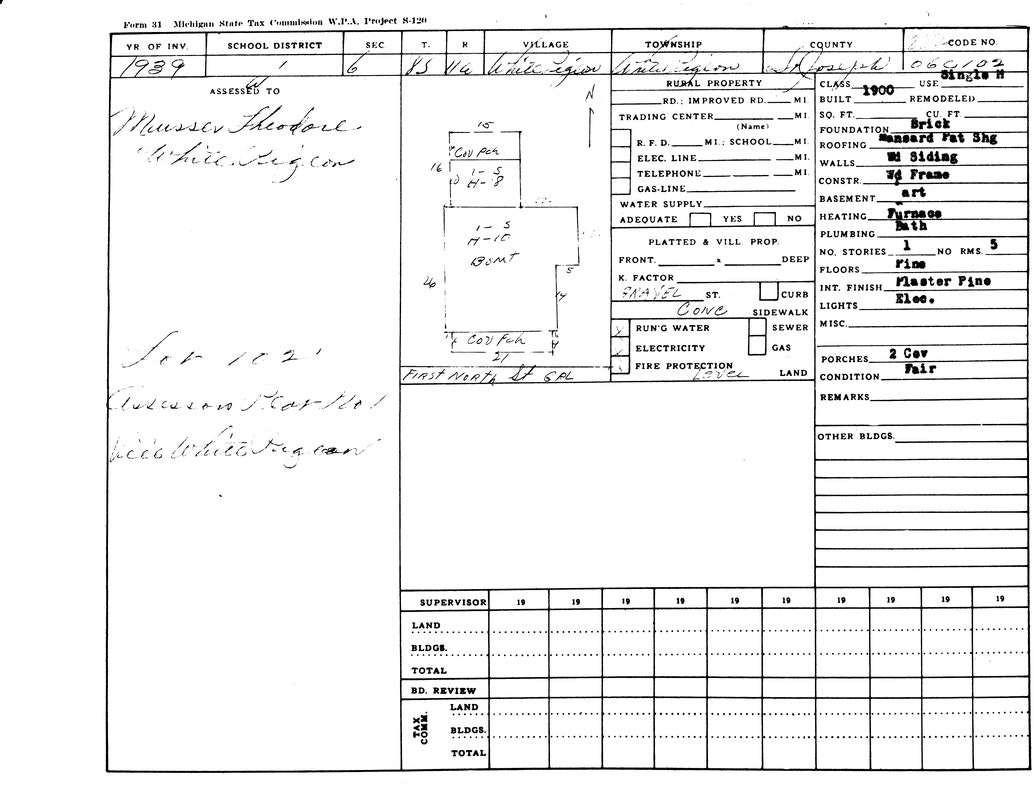 Form 31 Michigan State Tax Commission W.P.A. Project S-120
YR OF INV. SCHOOL DISTRICT SEC T. R VILLAGE TOWNSHIP COUNTY CODE NO.
1939 1 6 8S 11W White Pigeon White Pigeon St Joseph
ASSESSED TO
Musser Theodore
White Pigeon
Lot 102
Assessors Plat No 1
Vill White Pigeon
N
15
Cov Pch
16
1-S
H-8
1-S
H-10
BSMT
26
5
14
Cov Pch
27
FIRST NORTH St GPL
RURAL PROPERTY
RD.; IMPROVED RD. MI.
TRADING CENTER MI.
(Name)
R. F. D. MI.; SCHOOL MI.
ELEC. LINE MI.
TELEPHONE MI.
GAS-LINE
WATER SUPPLY
ADEQUATE YES NO
PLATTED & VILL. PROP.
FRONT. x DEEP
K. FACTOR
GRAVEL ST. CURB
CONC SIDEWALK
RUN'G WATER SEWER
ELECTRICITY GAS
FIRE PROTECTION
LEVEL LAND
CLASS USE Single H
BUILT 1900 REMODELED
SQ. FT. CU. FT.
FOUNDATION Brick
ROOFING Mansard Pat Shg
WALLS Wd Siding
CONSTR. Wd Frame
BASEMENT art
HEATING Furnace
PLUMBING Bath
NO. STORIES 1 NO RMS. 5
FLOORS Pine
INT. FINISH Plaster Pine
LIGHTS Elec.
MISC.
PORCHES 2 Cov
CONDITION Fair
REMARKS
OTHER BLDGS.
SUPERVISOR 19 19 19 19 19 19 19 19 19 19
LAND
BLDGS.
TOTAL
BD. REVIEW
TAX COMM.
LAND
BLDGS.
TOTAL